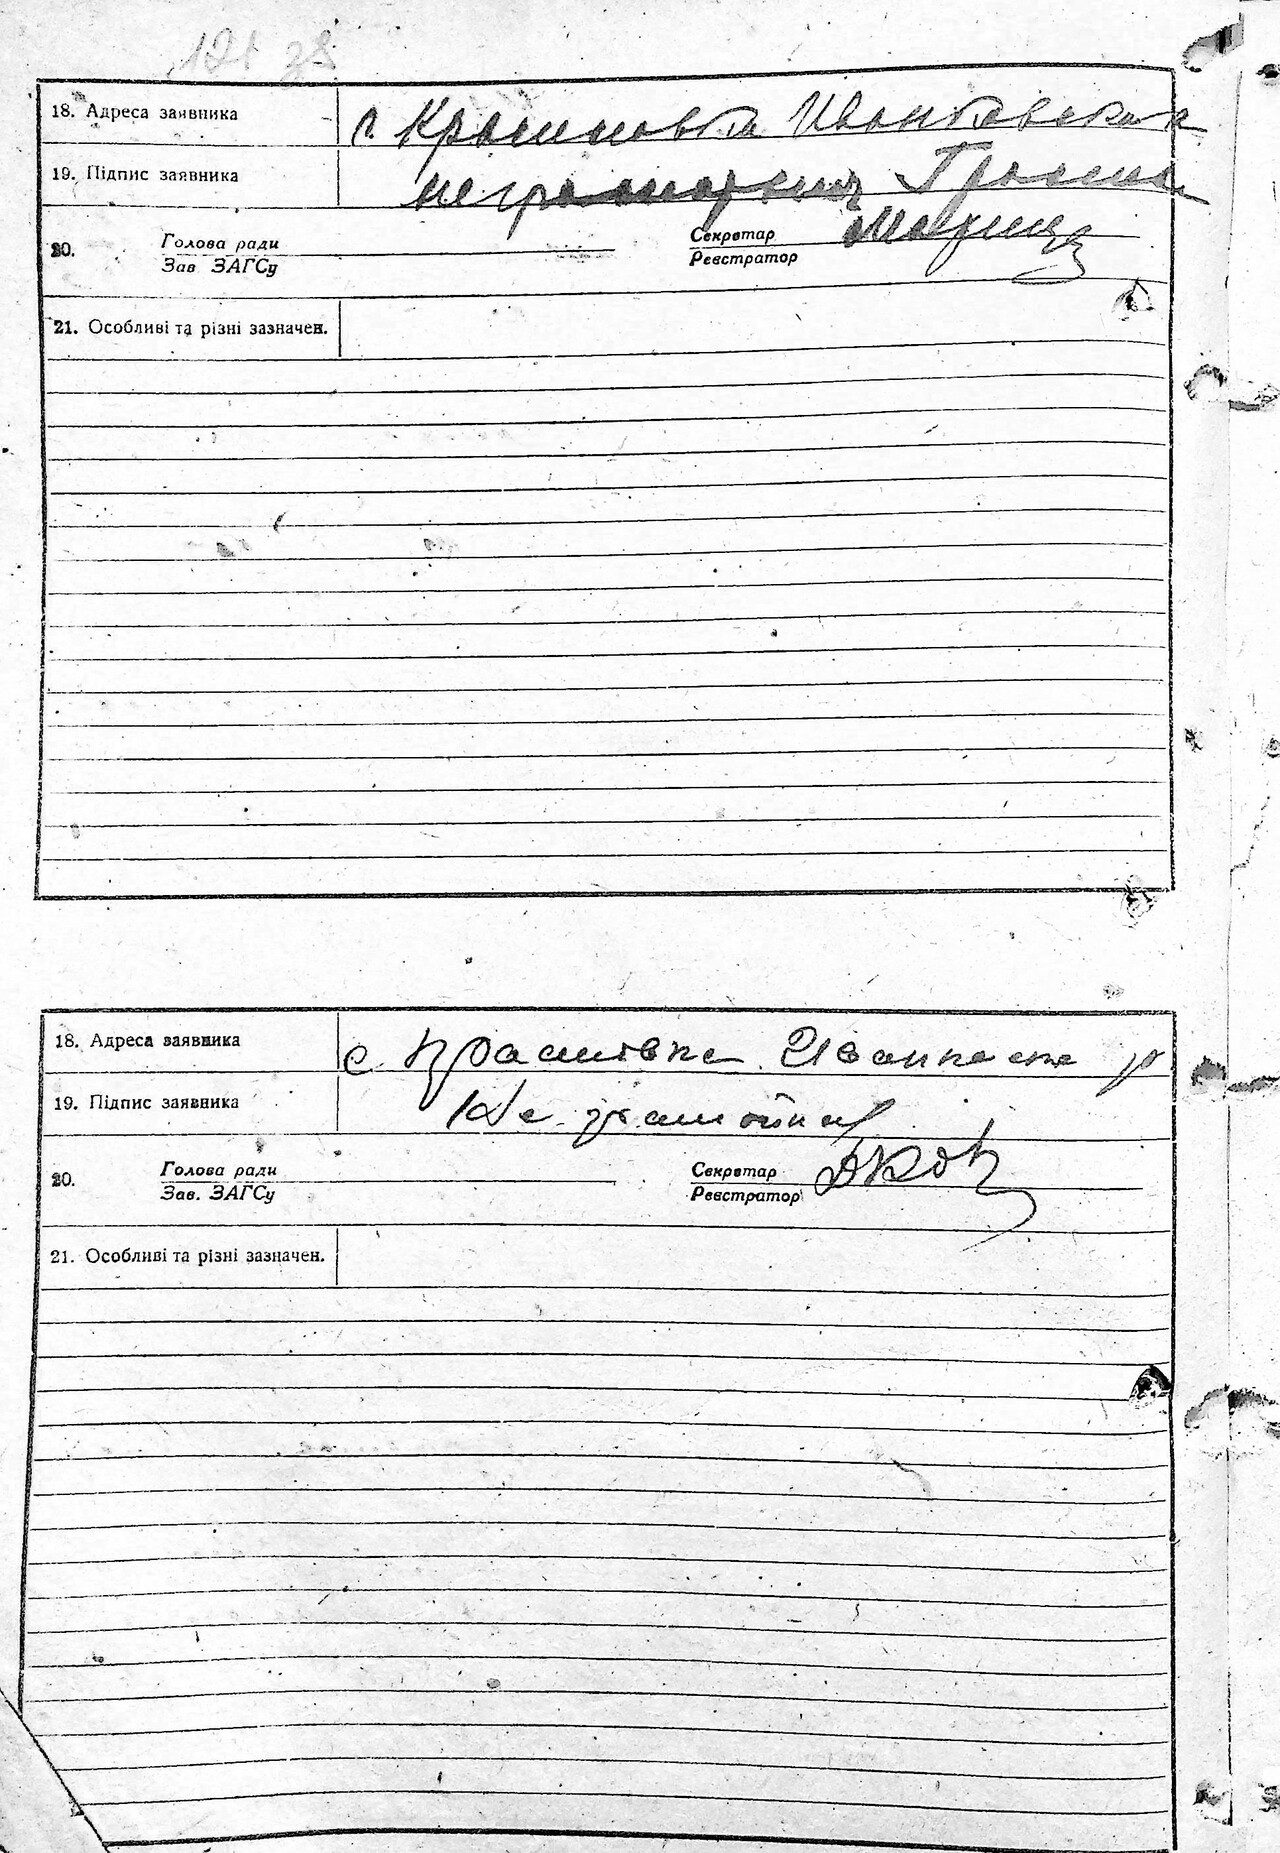 121 зв
18. Адреса заявника с. Красиловка Иванковская
19. Підпис заявника неграмотная
20. Голова ради Секретар
Зав ЗАГСу Реєстратор
21. Особливі та різні зазначен.
18. Адреса заявника с Красилівка Иванков р
19. Підпис заявника Не грамотная
20. Голова ради Секретар
Зав. ЗАГСу Реєстратор
21. Особливі та різні зазначен.